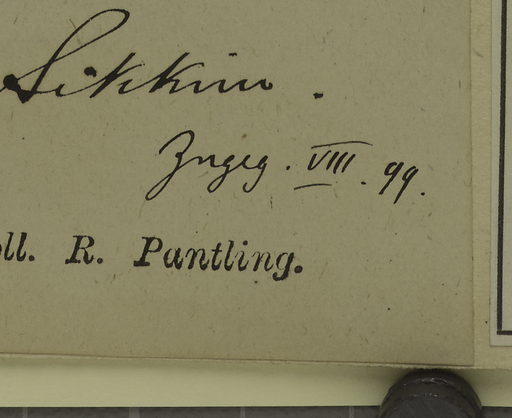 Sikkim.
Zngeg. VIII. 99.
oll. R. Pantling.